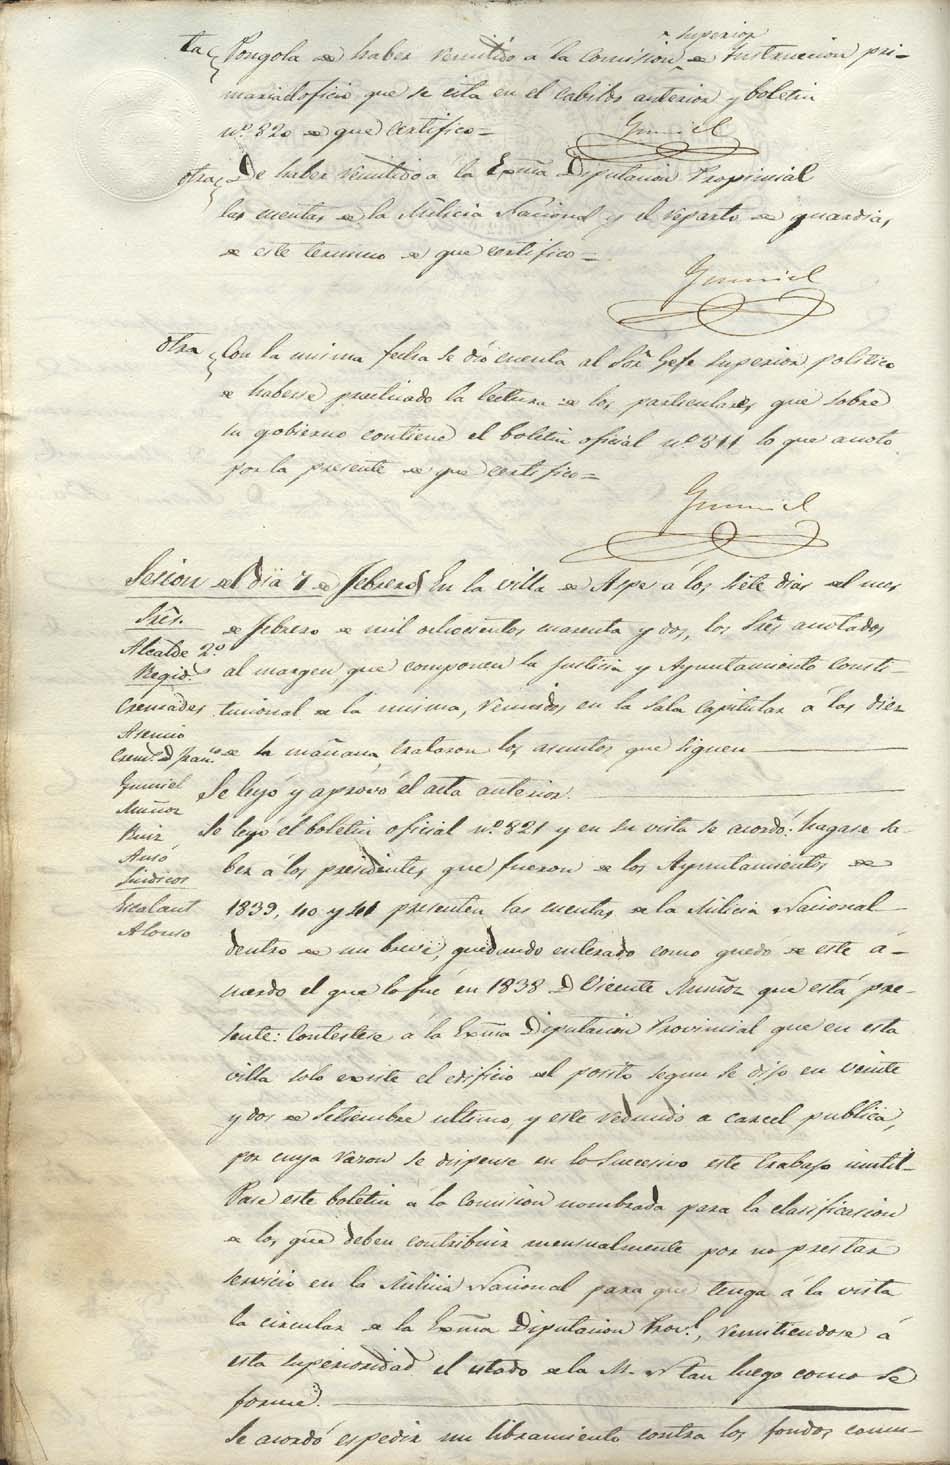 superior
ta Pongola de haber remitido á la Comision de Instruccion pri-
maria el oficio que se cita en el cabildo anterior y boletin
nº 820 de que certifico=
Gumiel
otra De haber remitido á la Exma Diputacion Provincial
las cuentas de la Milicia Nacional y el reparto de guardias
de este termino de que certifico=
Gumiel
otra Con la misma fecha se dió cuenta al Sor Gefe superior politico
de haberse practicado la lectura de los particulares que sobre
su gobierno contiene el boletin oficial nº 811 lo que anoto
por la presente de que certifico=
Gumiel
Sesion del dia 7 de febrero En la villa de Aspe á los siete dias del mes
Sres. de febrero de mil ochocientos cuarenta y dos, los Sres anotados
Alcalde 2º
Regid.s al margen, que componen la Justicia y Ayuntamiento Consti-
Cremades tucional de la misma, reunidos en la Sala Capitular á las diez
Asencio
Crem.s D. Fran.co de la mañana, trataron los asuntos que siguen
Gumiel Se leyó y aprovó el acta anterior.
Muñoz
Ruiz Se leyó el boletin oficial nº 821 y en su vista se acordó: hagase sa-
Ausó ber á los presidentes que fueron de los Ayuntamientos de
Sindicos
Escalant 1839, 40 y 41 presenten las cuentas de la Milicia Nacional
Alonso dentro de un breve, quedando enterado como quedó de este á-
cuerdo el que lo fué en 1838 D Vicente Muñoz que está pre-
sente: Contestese á la Exma Diputacion Provincial que en esta
villa solo existe el edificio del posito segun se dijo en veinte
y dos de Setiembre ultimo, y este reducido a carcel publica,
por cuya razon se dispense en lo sucesivo este trabajo inutil-
Pase este boletin á la Comision nombrada para la clasificasion
de los que deben contribuir mensualmente por no prestar
servicio en la Milicia Nacional para que tenga á la vista
la circular de la Exma Diputacion Prov.l, remitiendose á
esta superioridad el estado de la M. N tan luego como se
forme.
Se acordó espedir un libramiento contra los fondos comu-